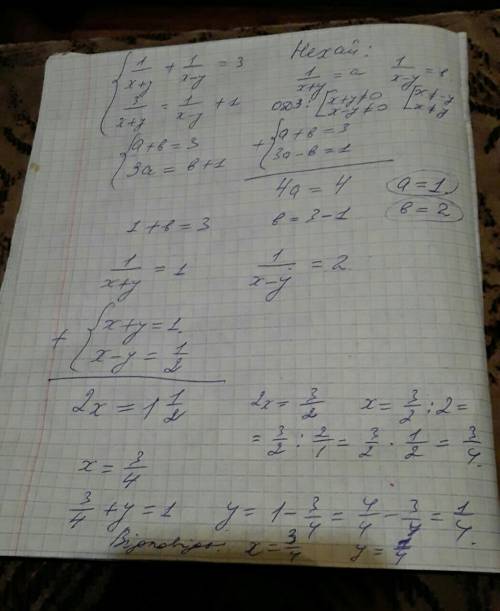 { 1/(x+y) + 1/(x-y) = 3
{ 3/(x+y) = 1/(x-y) + 1
Нехай:
1/(x+y) = a 1/(x-y) = в
одз: [x+y≠0 [x≠-y
[x-y≠0 [x≠y
{ a+в=3
{ 3a = в+1
+ { a+в=3
{ 3a-в=1
4a = 4 a=1,
1+в=3 в=3-1 в=2
1/(x+y) = 1 1/(x-y) = 2
+ { x+y=1.
{ x-y = 1/2
2x = 1 1/2 2x = 3/2 x = 3/2 : 2 =
= 3/2 : 2/1 = 3/2 · 1/2 = 3/4.
x = 3/4
3/4 + y = 1 y = 1 - 3/4 = 4/4 - 3/4 = 1/4.
Відповідь: x = 3/4 y = 1/4